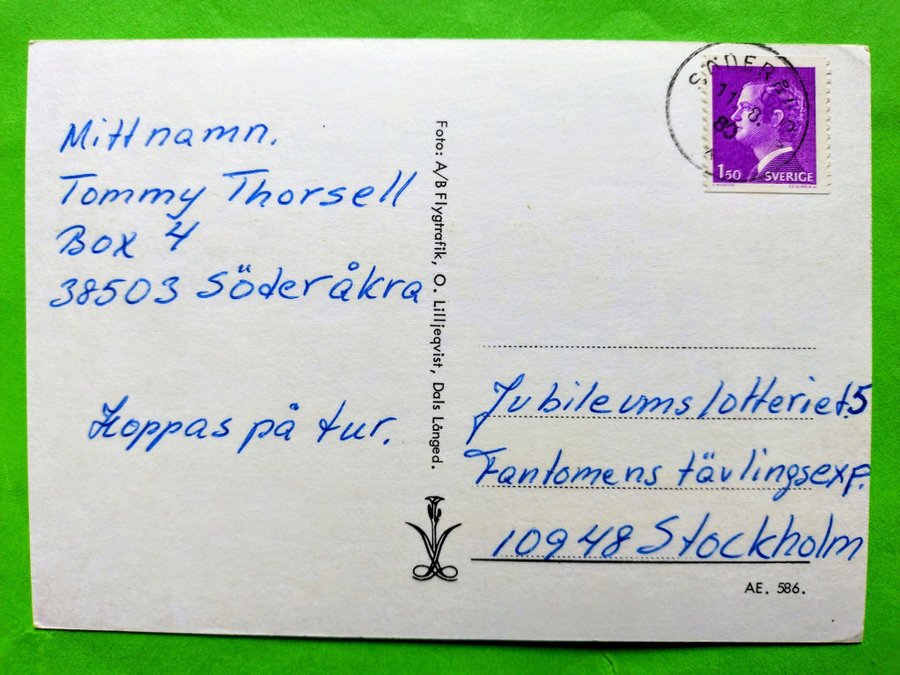 Mitt namn.
Tommy Thorsell
Box 4
38503 Söderåkra
Hoppas på tur.
Foto: A/B Flygtrafik, O. Lilljeqvist, Dals Långed.
11. 8.
80
1 50 SVERIGE
Jubileumslotteriet.5
Fantomens tävlingsexp.
10948 Stockholm
AE. 586.